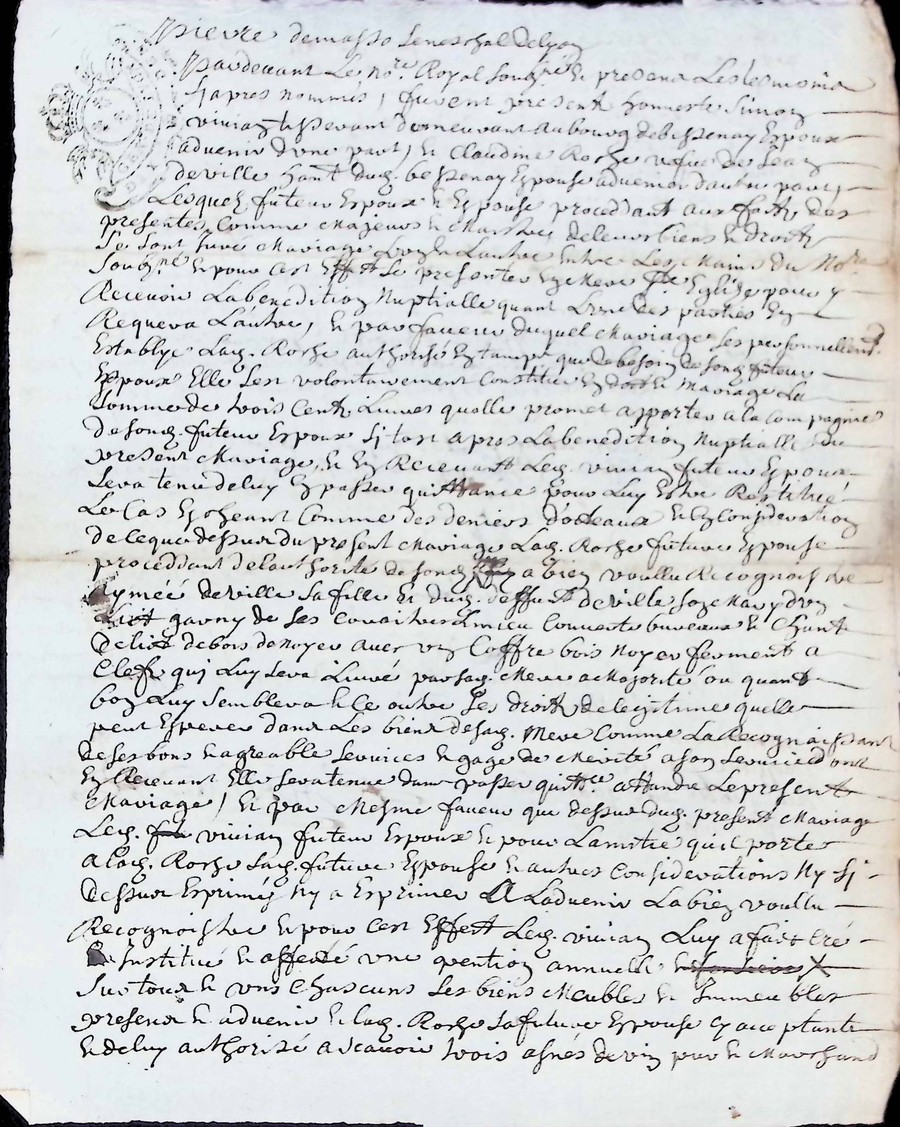 Pierre demasso seneschal delyon
Pardevant Le nore. Royal soubzne & presens Les tesmoins
sy apres nommés, furent present honneste simon
vivian tisserant demeurant au bourg debessenay Espoux
advenir dune part, & Claudine Rozhe vefve de Jean
deville hant dudz. bessenay Espouse advenir dautre part,
Lesquelz futeur Espoux & Espouse proceddant aux faitz des
presentes Comme Majeurs & Maistres deleurs biens & droitz
se sont Juré Mariage Lung a Lautre Entre Les Mains du Nore
soubzne & pour cest Effet se presenter En nere Ste Eglize pour y
Recevoir La benedition Nuptialle quant Lune des parties En
Requera L'autre, & par faveur duquel Mariage ses personnellemt.
Establye Ladz. Rozhe authorisé En tampt que de besoin de sondz futeur
Espoux Elle sest volontairement Constitué En dot & Mariage La
somme de trois Centz Livres quelle promet apporter a la Compagnie
de sondz. futeur Espoux si tost apres La benedition Nuptialle du
present Mariage, & En Recevant Ledz. vivian futeur Espoux
sera tenu deluy En passer quittance pour Luy Estre Restitué
Le Cas Escheant Comme des deniers d'oteaux & En Consideration
de ce que dessus du present Mariage Ladz. Rozhe future Espouse
proceddant de l'authorité de sondz a bien voullu Recognoistre
Aymée deville sa fille & dudz. deffunt deville son Mary d'un
Lict garny de ses Couaitres Linceu Couverte bureaux & Chant
de lict de bois de Noyer avec un Coffre bois Noyer ferment a
Clefz qui Luy sera Livré par sadz. Mere a Majorité ou quant
bon Luy semblera & Ce outre ses droitz de legitime quelle
peut Esperer dans Les biens de sadz. Mere Comme La Recognaissant
deses bons & agreable services & gage de Merité a son service dont
En Recevant Elle sera tenue dem passer quitce. attandu Lepresent
Mariage, & par Mesme faveur que dessus dudz. present Mariage
Ledz. vivian futeur Espoux & pour Lamitié quil porte
a ladz. Rozhe sadz. future Espouse & autres Considerations Ny sy
dessus Exprimés Ny a Exprimer A Ladvenir La bien voullu
Recognoistre & pour cest Effett Ledz. vivian Luy a fait Cré
& Institué & affecté une pention annuelle & X
sur tous & uns Chascuns ses biens Meubles & Immeubles
presens & advenir & ladz. Rozhe sa future Espouse cy acceptante
& deluy authorizé a scavoir trois asnés de vin pur & Marchand